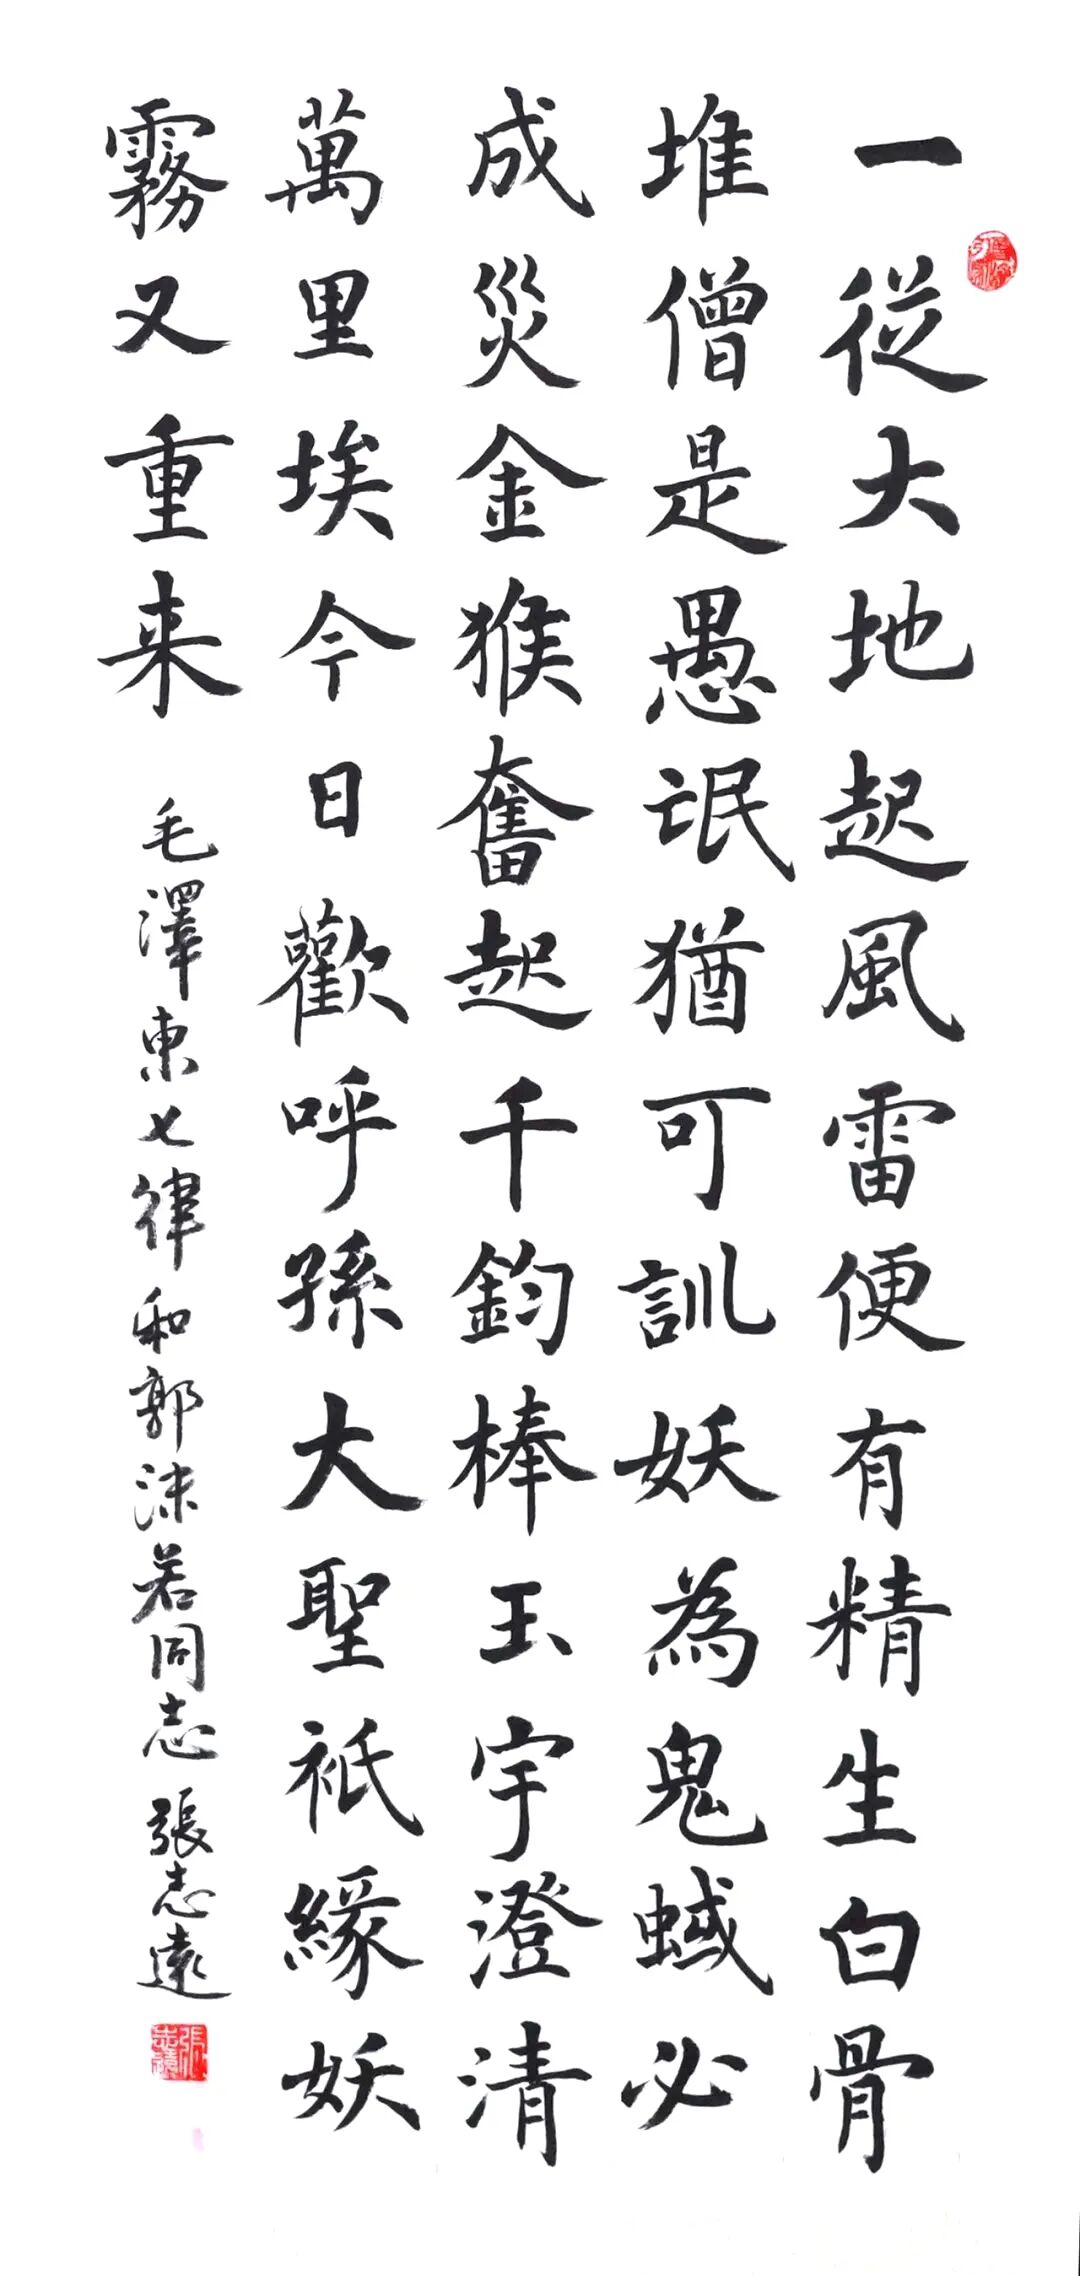 一從大地起風雷便有精生白骨
堆僧是愚氓猶可訓妖為鬼蜮必
成災金猴奮起千鈞棒玉宇澄清
萬里埃今日歡呼孫大聖衹緣妖
霧又重来
毛澤東七律和郭沫若同志 張志遠